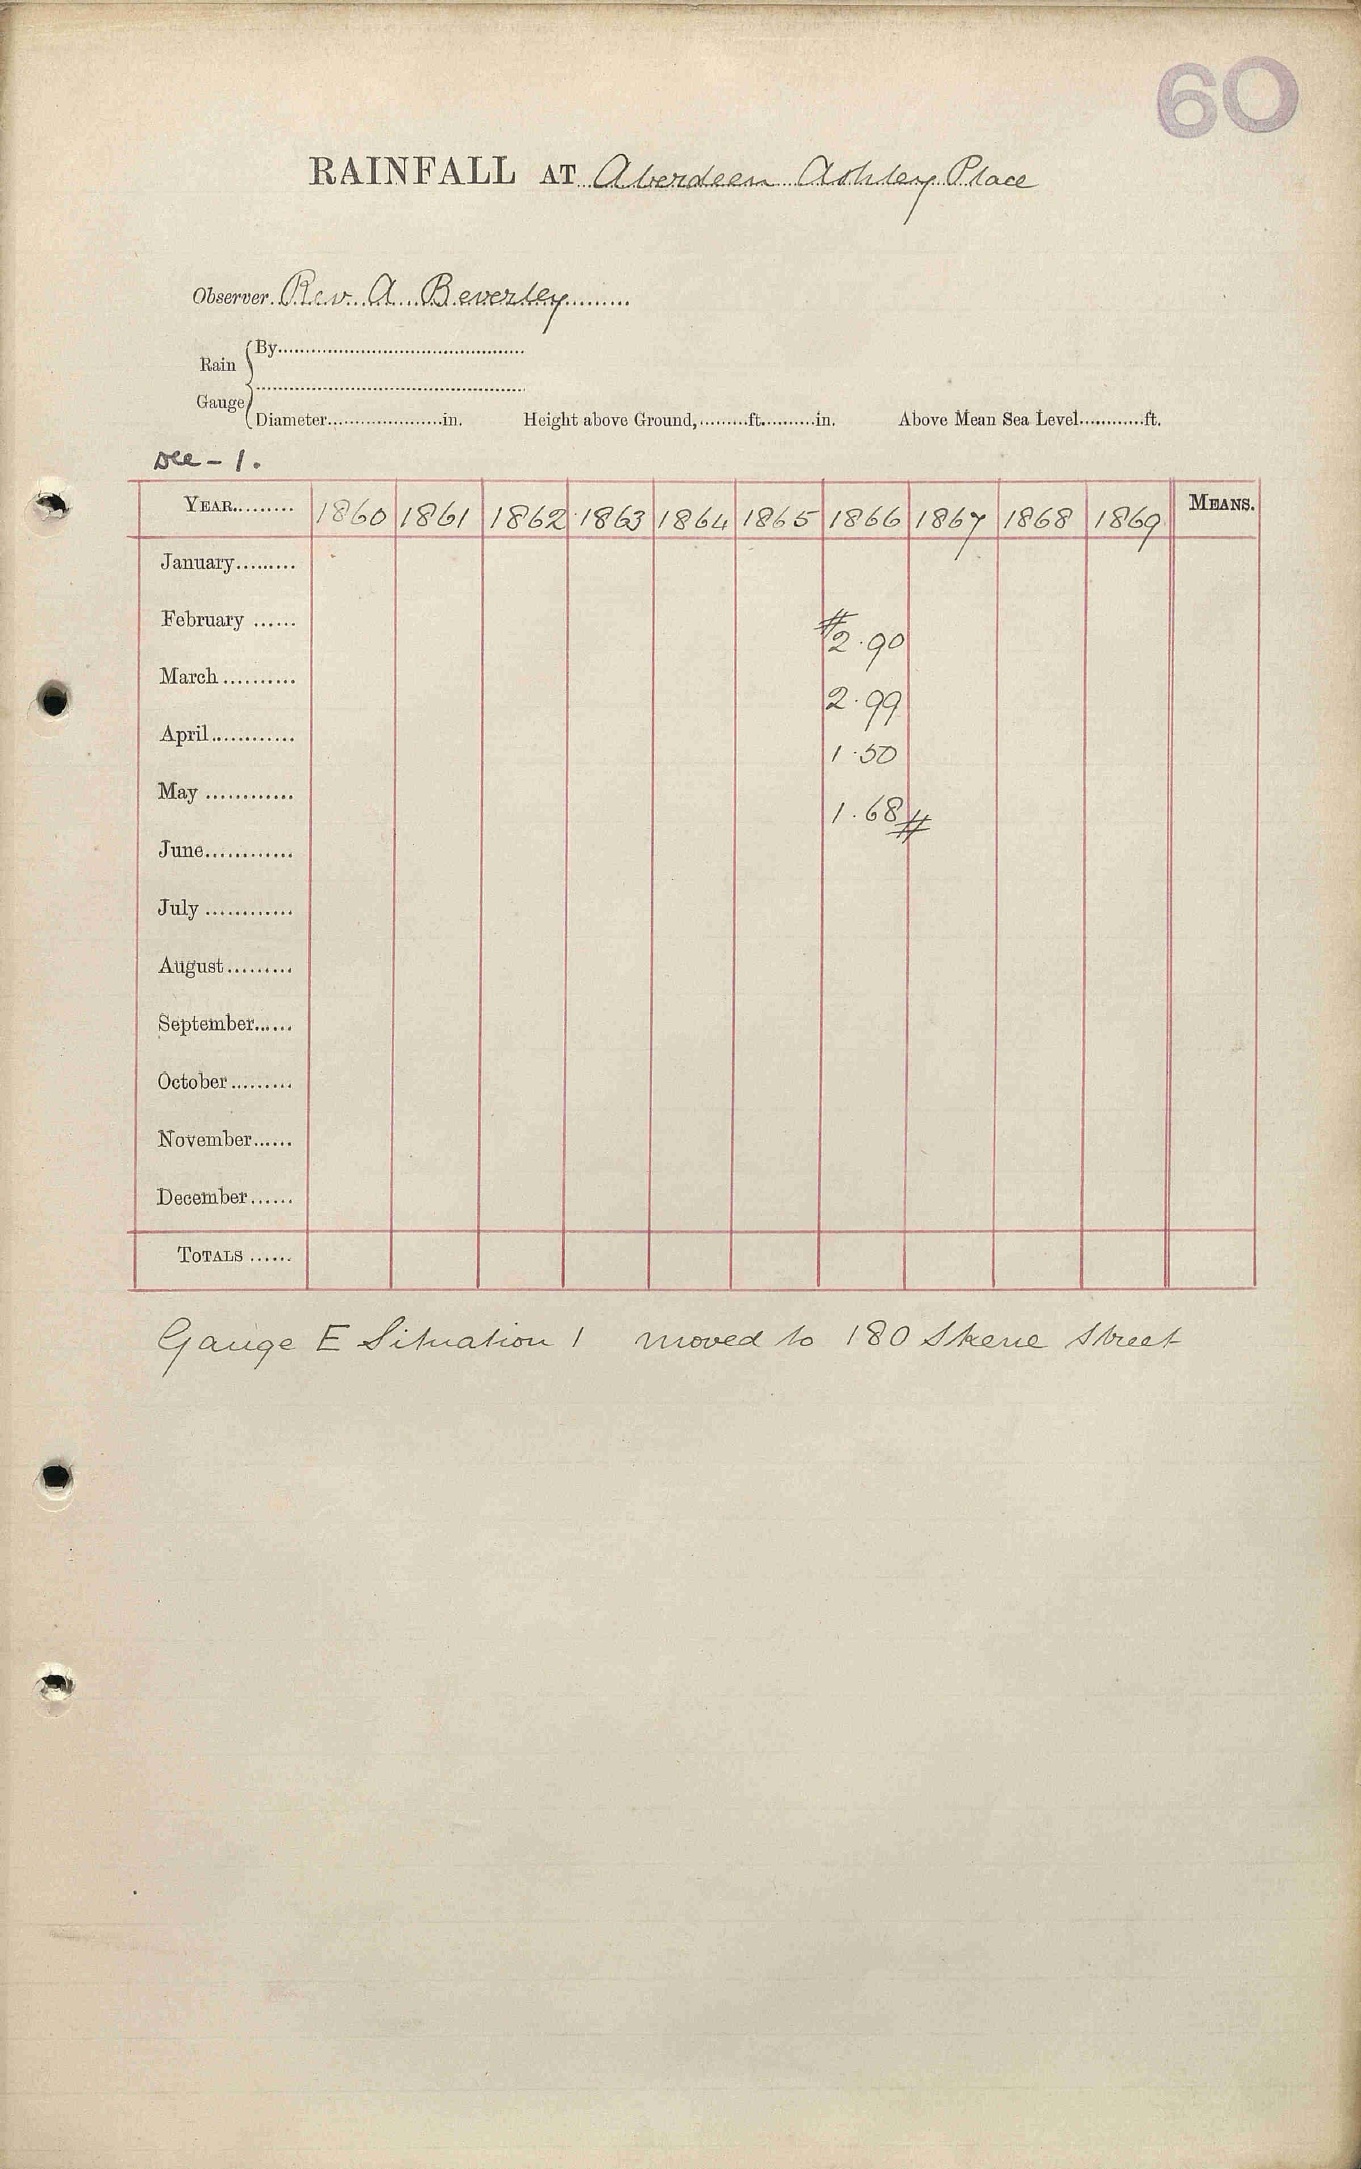 60
RAINFALL AT Aberdeen Ashley Place
Observer Rev. A. Beverley
Rain Gauge
By
Diameter in. Height above Ground, ft. in. Above Mean Sea Level ft.
Dee - 1.
YEAR 1860 1861 1862 1863 1864 1865 1866 1867 1868 1869 MEANS.
January
February #2.90
March 2.99
April 1.50
May 1.68#
June
July
August
September
October
November
December
TOTALS
Gauge E Situation 1 moved to 180 Skene Street